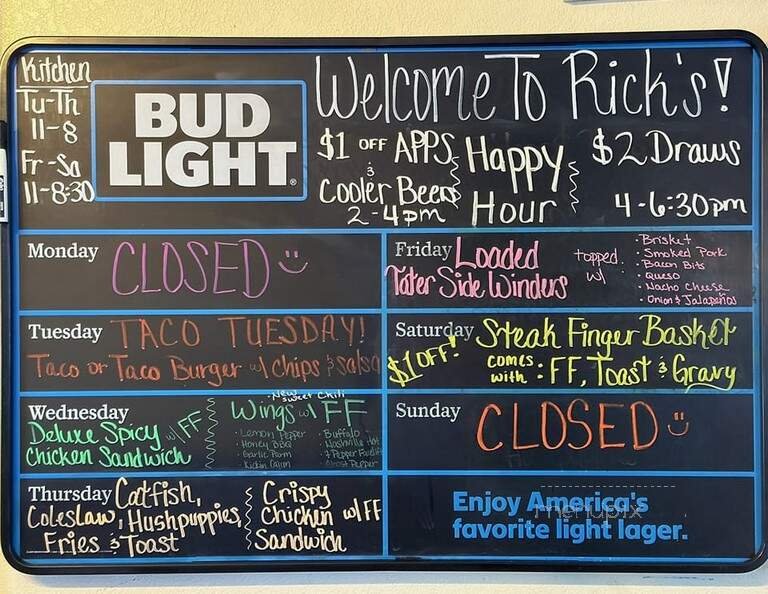 Kitchen
Tu-Th
11-8
Fr-Sa
11-8:30
BUD
LIGHT
Welcome To Rick's!
$1 OFF APPS
&
Cooler Beers
2-4pm
Happy
Hour
$2 Draws
4-6:30pm
Monday
CLOSED
Tuesday
TACO TUESDAY!
Taco or Taco Burger w/ chips & salsa
Wednesday
Deluxe Spicy w/FF
Chicken Sandwich
New
Sweet Chili
Wings w/ FF
• Lemon Pepper
• Honey BBQ
• Garlic Parm
• Buffalo
• Nashville Hot
Thursday
Catfish,
Coleslaw, Hushpuppies,
Fries & Toast
Crispy
Chicken w/FF
Sandwich
Friday
Loaded
Tater Side Winders
topped
w/
• Brisket
• Smoked Pork
• Bacon Bits
• Queso
• Nacho Cheese
• Onion & Jalapeños
Saturday
Steak Finger Basket
$1 OFF!
comes
with : FF, Toast & Gravy
Sunday
CLOSED
Enjoy America's
favorite light lager.
menupix